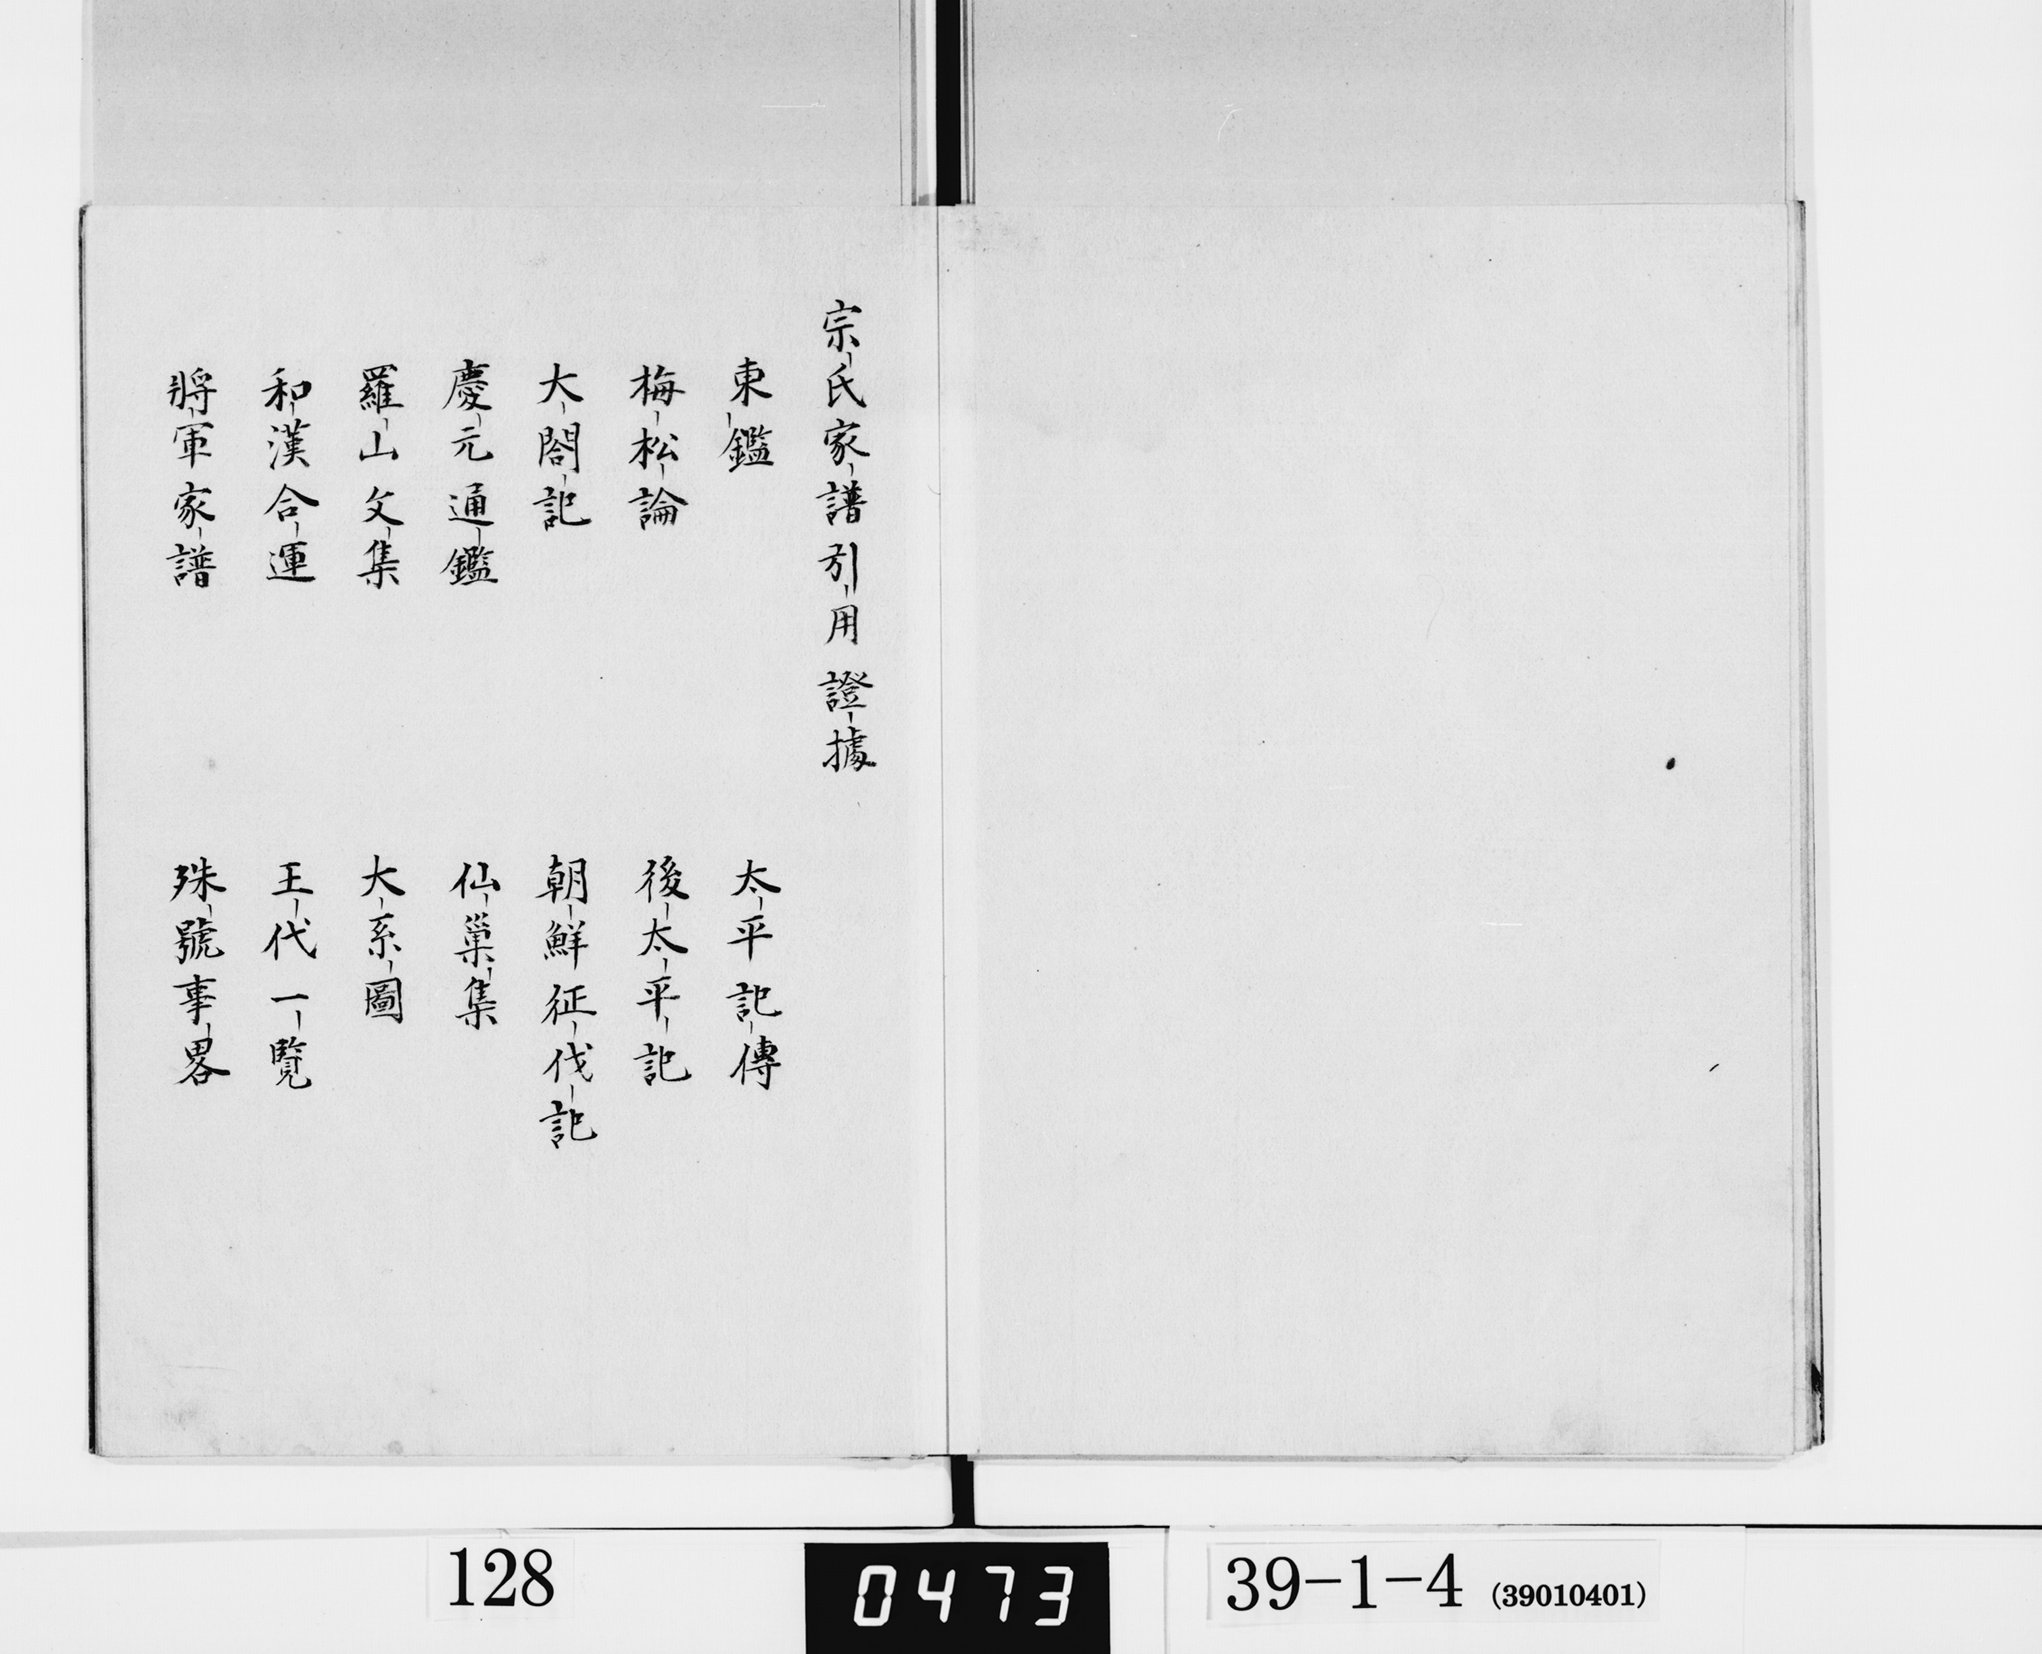 宗氏家譜引用證據
東鑑
太平記傳
梅松論
後太平記
大閤記
朝鮮征伐記
慶元通鑑
仙巢集
羅山文集
大系圖
和漢合運
王代一覽
將軍家譜
殊號事畧
128
0473
39-1-4 (39010401)